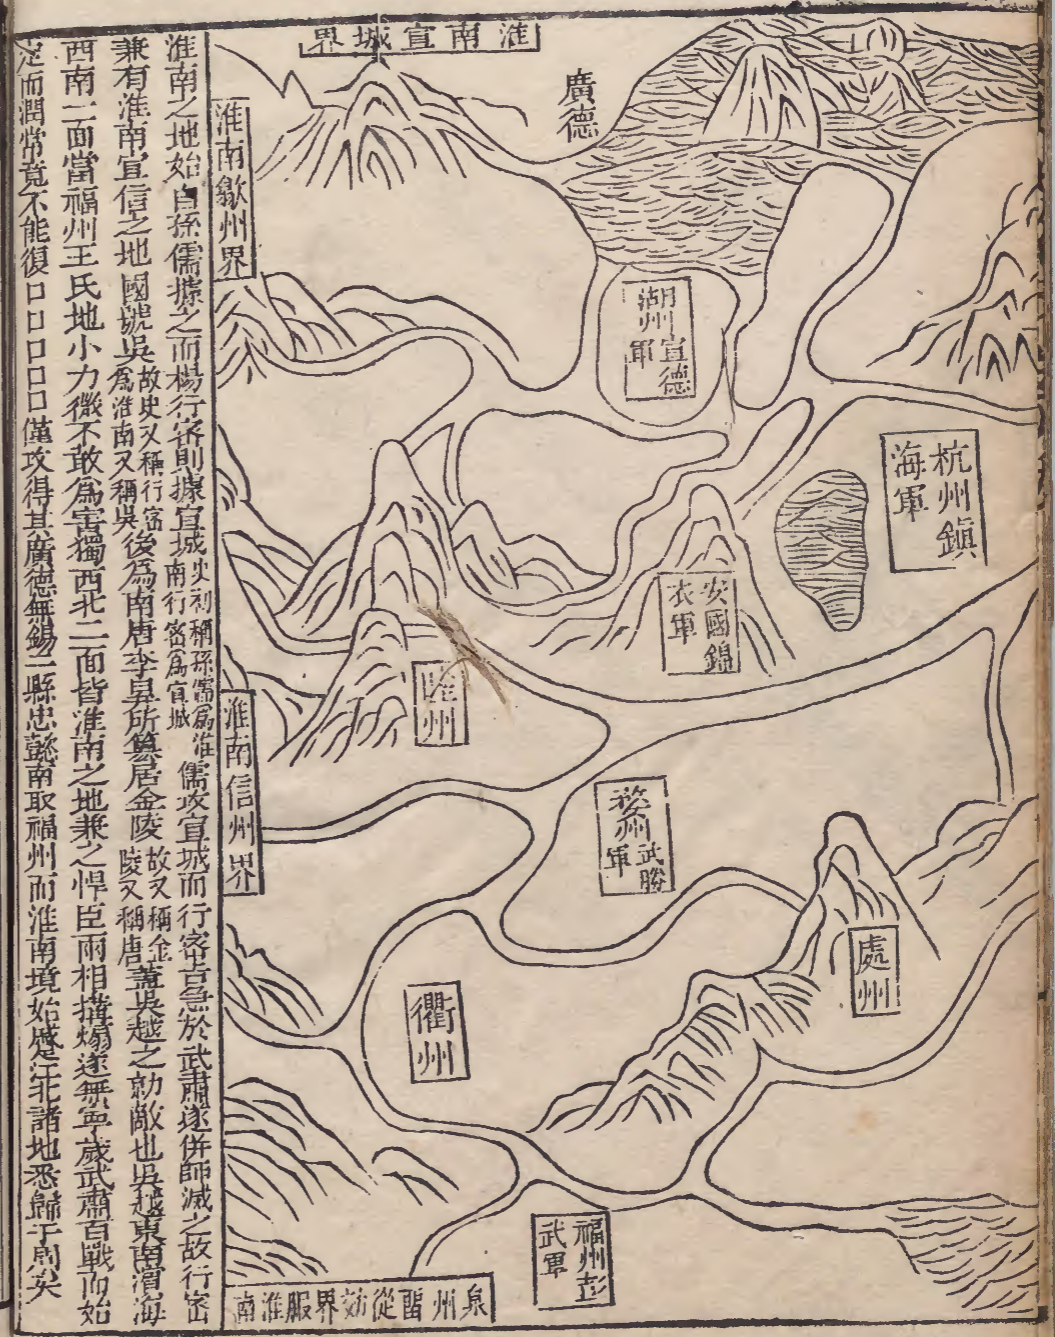 淮南宣城界
廣德
湖州宣德軍
杭州鎮海軍
安國錦衣軍
睦州
婺州武勝軍
處州
衢州
福州彭武軍
泉州畱從効界服淮南
淮南歙州界
淮南信州界
淮南之地始自孫儒據之而楊行密則據宣城史初稱孫儒爲淮南行密爲宣城儒攻宣城而行密告急於武肅遂併師滅之故行密
兼有淮南宣信之地國號吳故史又稱行密爲淮南又稱吳後爲南唐李昪所篡居金陵故又稱金陵又稱唐蓋吳越之勍敵也吳越東南濵海
西南一面當福州王氏地小力微不敢爲害獨西北二面皆淮南之地兼之悍臣兩相搆煽遂無寧歲武肅百戰而始
定而潤常竟不能復口口口口口僅攻得其廣德無錫二縣忠懿南取福州而淮南境始蹙江北諸地悉歸于矣